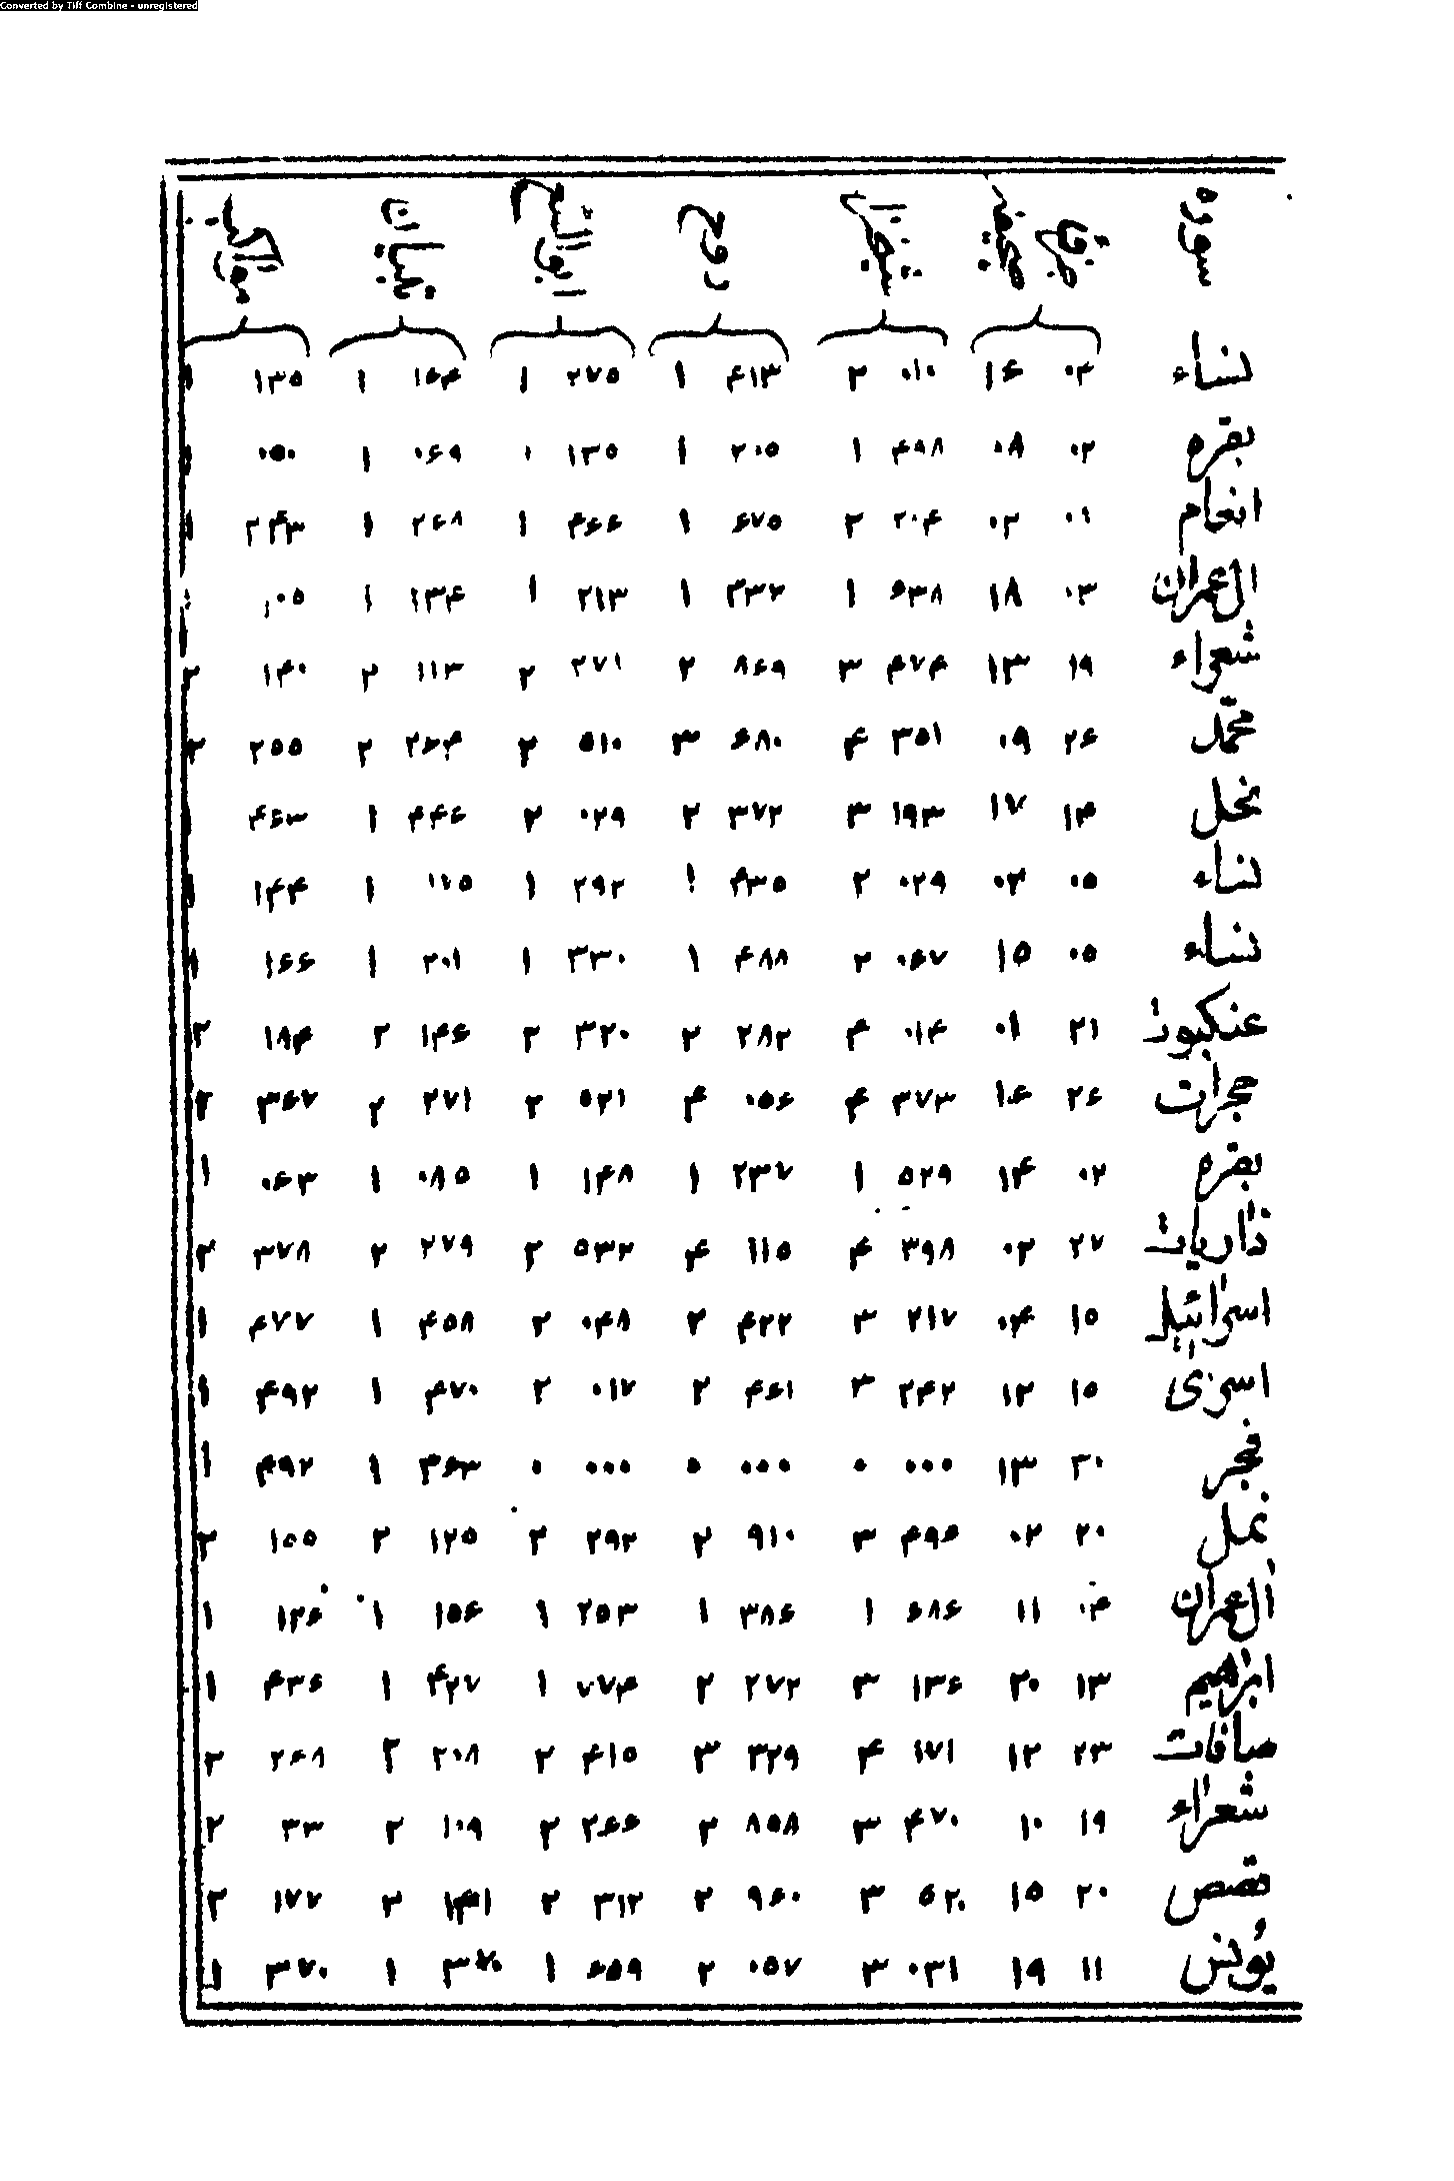 Converted by Tiff Combine - unregistered
سوره روح تبیان
نساء ۰۴ ۱۶ ۰۱۰ ۲ ۴۱۳ ۱ ۲۷۵ ۱ ۱۶۴ ۱ ۱۳۵ ۱
بقره ۰۲ ۰۸ ۴۹۸ ۱ ۲۰۵ ۱ ۱۳۵ ۱ ۰۶۹ ۱ ۰۵۰ ۱
انعام ۰۶ ۰۲ ۲۰۴ ۲ ۶۷۵ ۱ ۴۶۶ ۱ ۲۶۸ ۱ ۲۴۳ ۱
ال عمران ۰۳ ۱۸ ۶۳۸ ۱ ۳۳۲ ۱ ۲۱۳ ۱ ۱۳۴ ۱ ۱۰۵
شعراء ۱۹ ۱۳ ۴۷۴ ۳ ۸۶۹ ۲ ۲۷۱ ۲ ۱۱۳ ۲ ۱۴۰ ۲
محمّد ۲۶ ۰۹ ۳۵۱ ۴ ۶۸۰ ۳ ۵۱۰ ۲ ۲۶۴ ۲ ۲۵۵ ۲
نحل ۱۴ ۱۷ ۱۹۳ ۳ ۳۷۲ ۲ ۰۲۹ ۲ ۴۴۶ ۱ ۴۶۳
نساء ۰۵ ۰۳ ۰۲۹ ۲ ۴۳۵ ۱ ۲۹۲ ۱ ۱۷۵ ۱ ۱۴۴ ۱
نساء ۰۵ ۱۵ ۰۶۷ ۲ ۴۸۸ ۱ ۳۳۰ ۱ ۲۰۱ ۱ ۱۶۶ ۱
عنکبوت ۲۱ ۰۱ ۰۱۴ ۴ ۲۸۲ ۲ ۳۲۰ ۲ ۱۴۶ ۲ ۱۸۴ ۲
حجرات ۲۶ ۱۶ ۳۷۳ ۴ ۰۵۶ ۴ ۵۲۱ ۲ ۲۷۱ ۲ ۳۶۷ ۲
بقره ۰۲ ۱۴ ۵۲۹ ۱ ۲۳۷ ۱ ۱۴۸ ۱ ۰۸۵ ۱ ۰۶۳ ۱
ذاریات ۲۷ ۰۲ ۳۹۸ ۴ ۱۱۵ ۴ ۵۳۲ ۲ ۲۷۹ ۲ ۳۷۸ ۲
اسرائیل ۱۵ ۰۴ ۲۱۷ ۳ ۴۲۲ ۲ ۰۴۸ ۲ ۴۵۸ ۱ ۴۷۷ ۱
اسرٰی ۱۵ ۱۲ ۲۴۲ ۳ ۴۶۱ ۲ ۰۱۷ ۲ ۴۷۰ ۱ ۴۹۲ ۱
فجر ۳۰ ۱۳ ۰۰۰ ۰ ۰۰۰ ۰ ۰۰۰ ۰ ۳۶۳ ۱ ۴۹۲ ۱
نمل ۲۰ ۰۲ ۴۹۶ ۳ ۹۱۰ ۲ ۲۹۲ ۲ ۱۲۵ ۲ ۱۵۵ ۲
ال عمران ۰۴ ۱۱ ۶۸۶ ۱ ۳۸۶ ۱ ۲۵۳ ۱ ۱۵۶ ۱ ۱۲۶ ۱
ابراهیم ۱۳ ۲۰ ۱۳۶ ۳ ۲۷۲ ۲ ۷۷۴ ۱ ۴۲۷ ۱ ۴۳۶ ۱
صافات ۲۳ ۱۲ ۱۷۱ ۴ ۳۲۹ ۳ ۴۱۵ ۲ ۲۰۸ ۲ ۲۶۸ ۲
شعراء ۱۹ ۱۰ ۴۷۰ ۳ ۸۵۸ ۲ ۲۶۶ ۲ ۱۰۹ ۲ ۳۳ ۲
قصص ۲۰ ۱۵ ۵۲۰ ۳ ۹۶۰ ۲ ۳۱۲ ۲ ۱۴۱ ۲ ۱۷۷ ۲
یُونس ۱۱ ۱۹ ۰۳۱ ۳ ۰۵۷ ۲ ۶۵۹ ۱ ۳۷۰ ۱ ۳۷۰ ۱